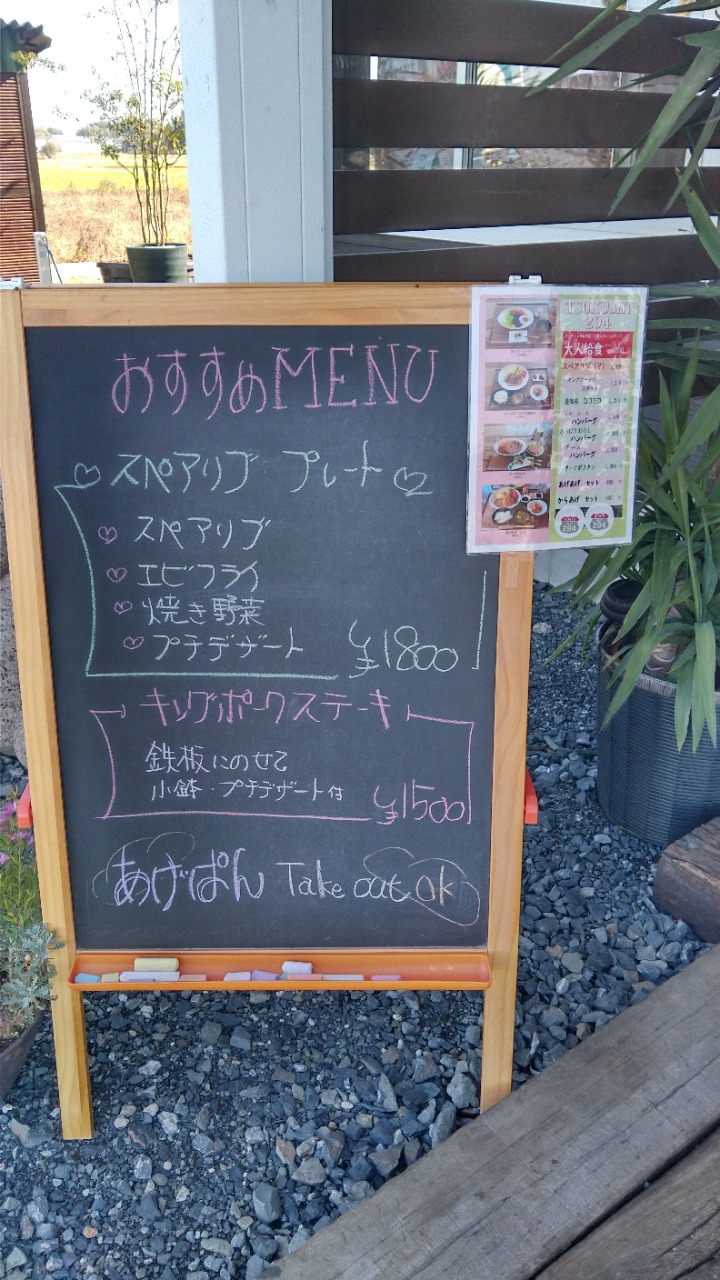 おすすめMENU
スペアリブ プレート
スペアリブ
エビフライ
焼き野菜
プチデザート
¥1800
キングポークステーキ
鉄板にのせて
小鉢・プチデザート付
¥1500
あげぱん Take out ok
TSUKUSHI
294
大人給食
スペアリブ(ア)
ハンバーグ
ハンバーグ
ハンバーグ
あげあげ セット
からあげ セット
294
294